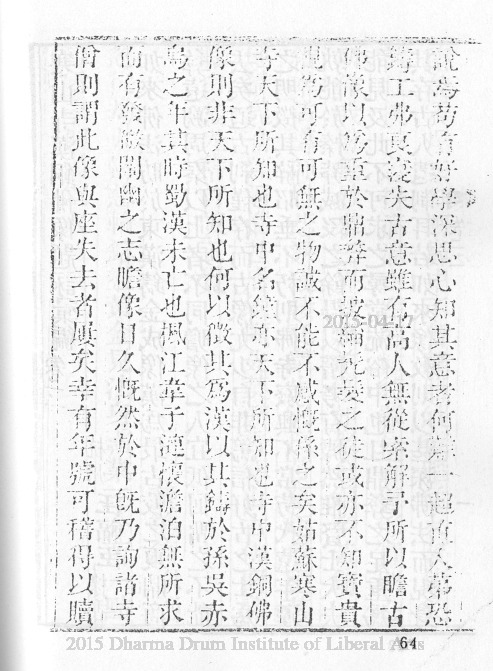 說焉苟有好學深思心知其意者何難一超直入第恐
鑄工弗良寖失古意雖有高人無從索解予所以瞻古
佛像以為重於鼎彝而披緇禿髮之徒或亦不知寶貴
視為可有可無之物誠不能不感慨係之矣姑蘇寒山
寺天下所知也寺中名鐘亦天下所知也寺中漢銅佛
像則非天下所知也何以徵其為漢以其鑄於孫吳赤
烏之年其時蜀漢未亡也楓江韋子漣懷澹泊無所求
而有發微闡幽之志瞻像日久慨然於中既乃詢諸寺
僧則謂此像與座失去者屢矣幸有年號可稽得以贖
2015-04-17
64
2015 Dharma Drum Institute of Liberal Arts